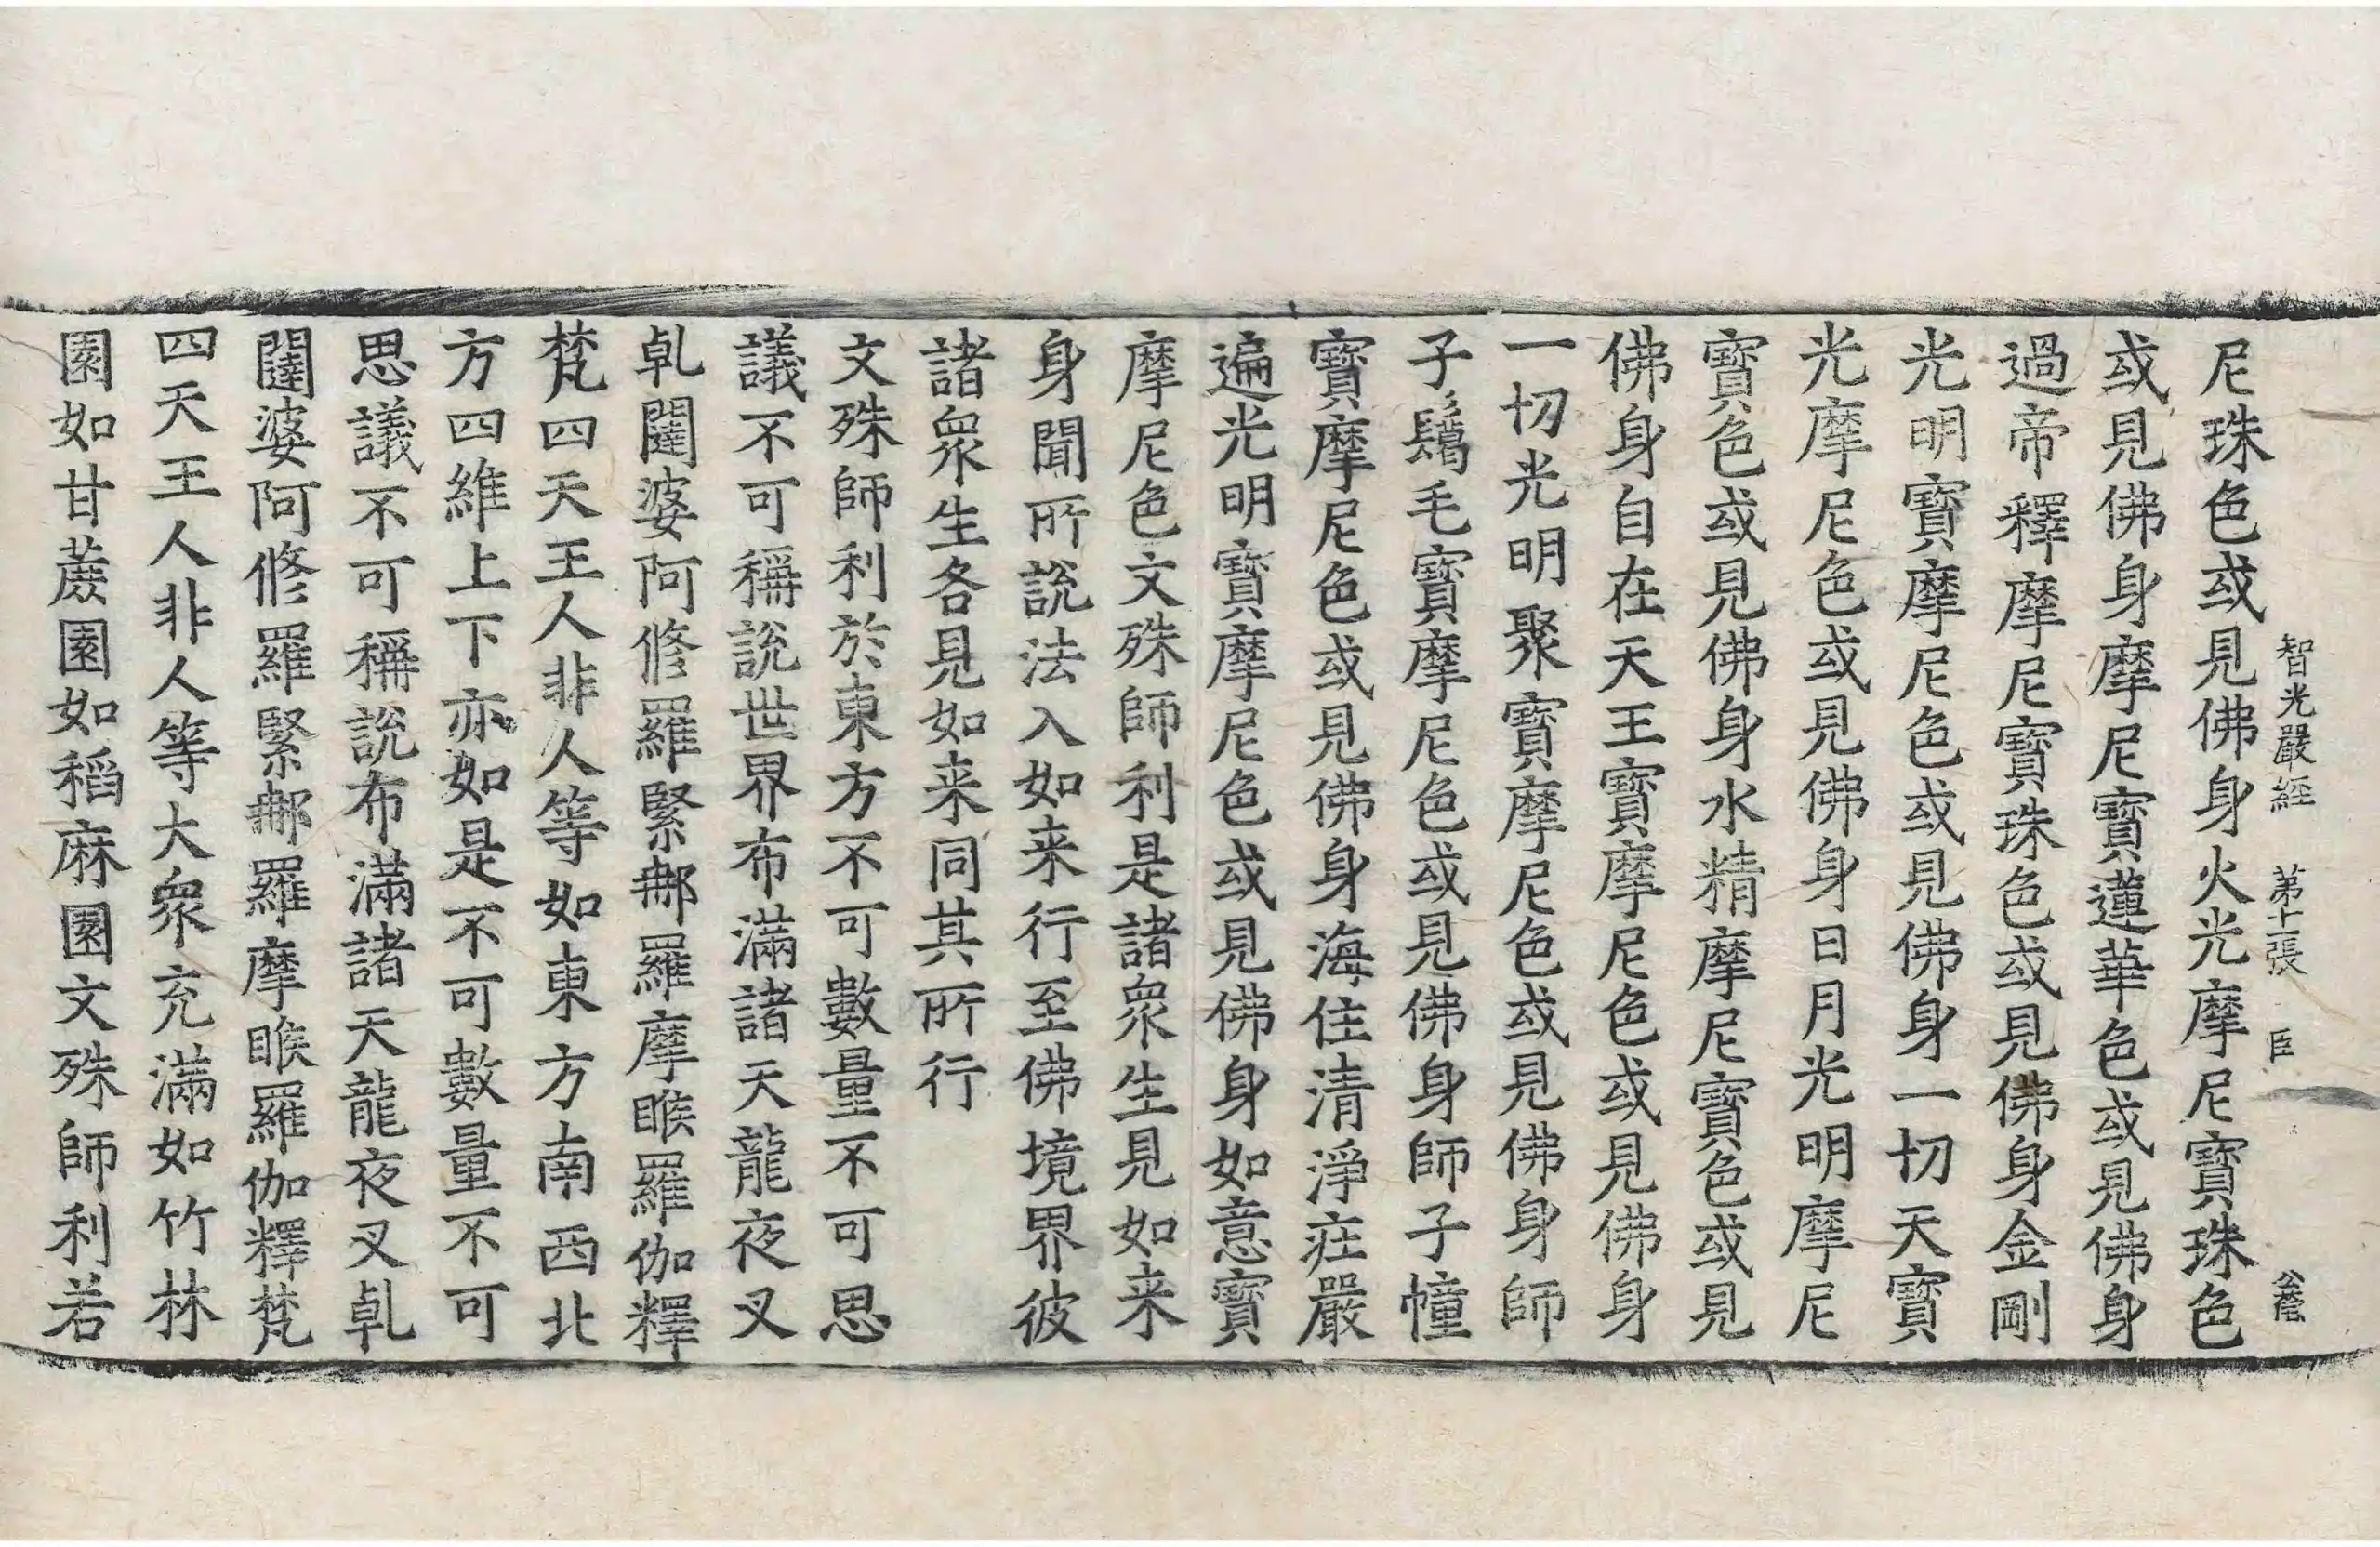 智光嚴經　第十張　臣
尼珠色或見佛身火光摩尼寶珠色
或見佛身摩尼寶蓮華色或見佛身
過帝釋摩尼寶珠色或見佛身金剛
光明寶摩尼色或見佛身一切天寶
光摩尼色或見佛身日月光明摩尼
寶色或見佛身水精摩尼寶色或見
佛身自在天王寶摩尼色或見佛身
一切光明聚寶摩尼色或見佛身師
子鬚毛寶摩尼色或見佛身師子幢
寶摩尼色或見佛身海住清淨莊嚴
遍光明寶摩尼色或見佛身如意寶
摩尼色文殊師利是諸衆生見如来
身聞所說法入如来行至佛境界彼
諸衆生各見如来同其所行
文殊師利於東方不可數量不可思
議不可稱說世界布滿諸天龍夜叉
乹闥婆阿修羅緊那羅摩睺羅伽釋
梵四天王人非人等如東方南西北
方四維上下亦如是不可數量不可
思議不可稱說布滿諸天龍夜叉乹
闥婆阿修羅緊那羅摩睺羅伽釋梵
四天王人非人等大衆充滿如竹林
園如甘蔗園如稻麻園文殊師利若